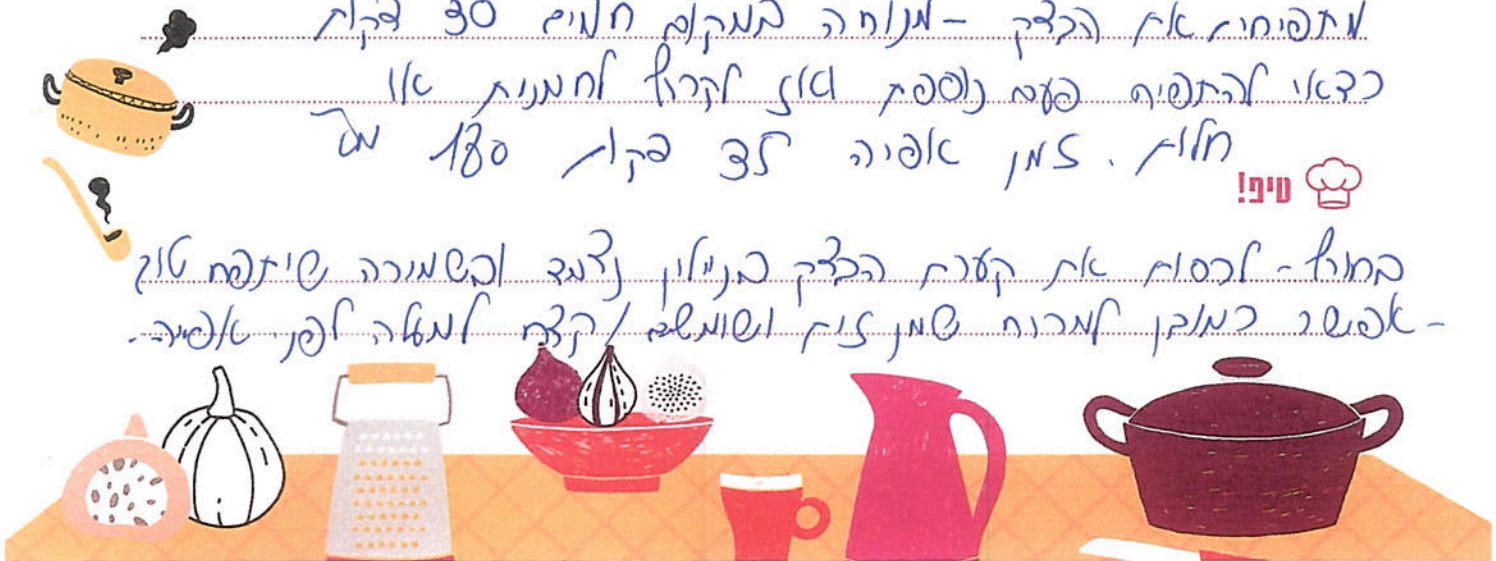 מתפיחים את הבצק - מנוחה במקום חמים 30 דקות
כדאי להתפיח פעם נוספת ואז לקרוץ לחמניות או
חלות. זמן אפיה 35 דקות 180 מע'
טיפ!
בחורף - לכסות את קערת הבצק בניילון נצמד ובשמיכה שיתפח טוב
- אפשר כמובן למרוח שמן זית ושומשום / קצח למעלה לפני אפייה.